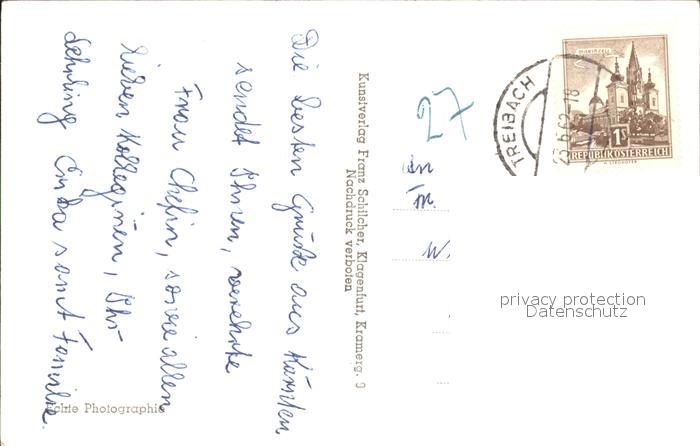 Die besten Grüße aus Kärnten
sendet Ihnen, verehrte
Frau Chefin, sowie allen
lieben Kolleginen, Ihr
Lehrling Erika samt Familie.
Echte Photographie
Kunstverlag Franz Schilcher, Klagenfurt, Kramerg. 9
Nachdruck verboten
27
An
Fr.
W.
MARIAZELL
1S
REPUBLIK ÖSTERREICH
TREIBACH
privacy protection
Datenschutz